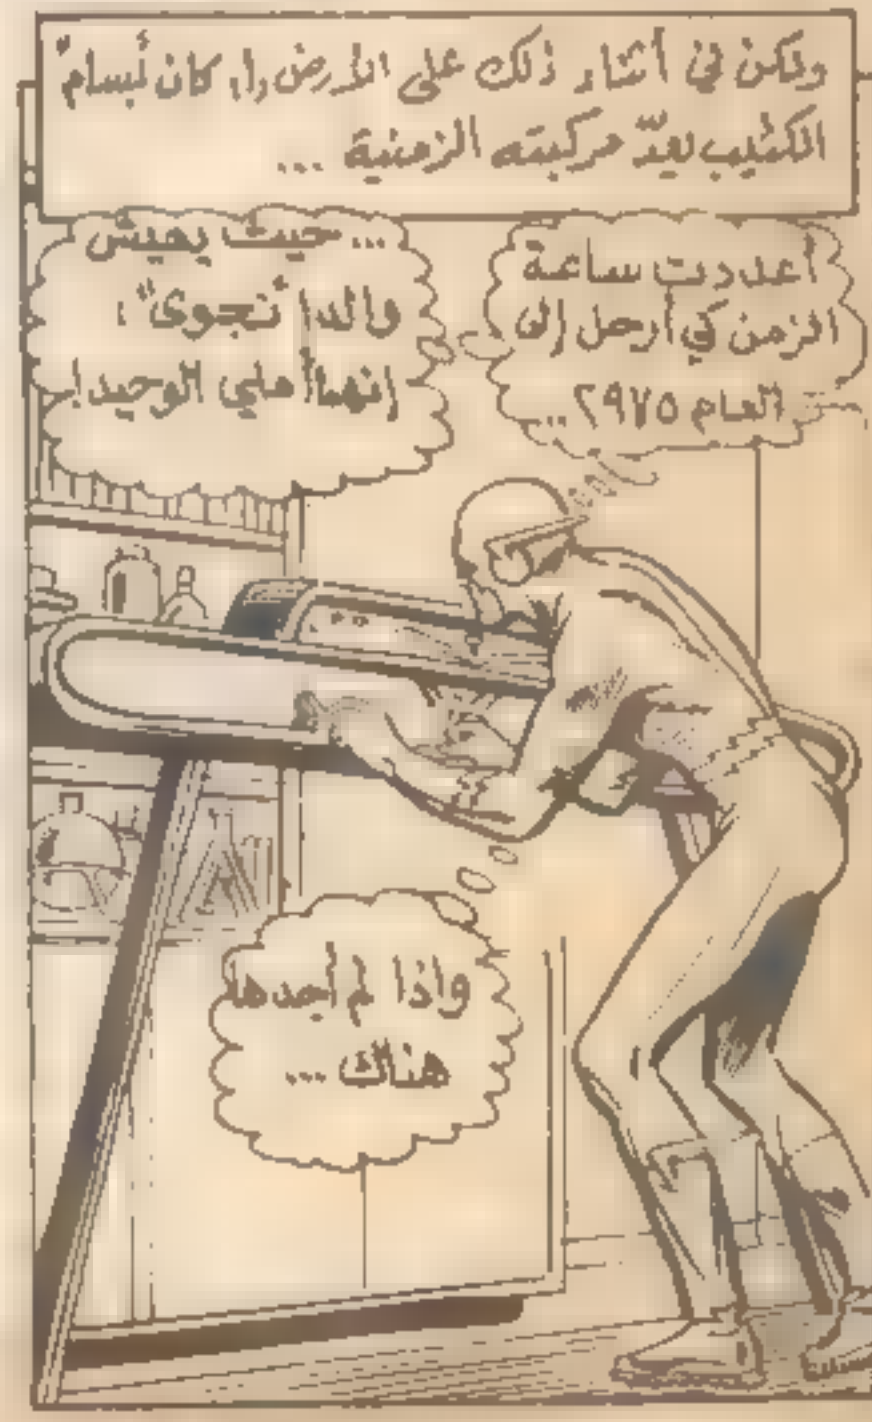 ولكن في أثناء ذلك على الأرض ١، كان "بسام"
الكئيب يعدّ مركبته الزمنية ...
أعددت ساعة
الزمن كي أرحل إلى
العام ٢٩٧٥...
... حيث يعيش
والدا "نجوى"،
إنهما أملي الوحيد!
واذا لم أجدها
هناك ...